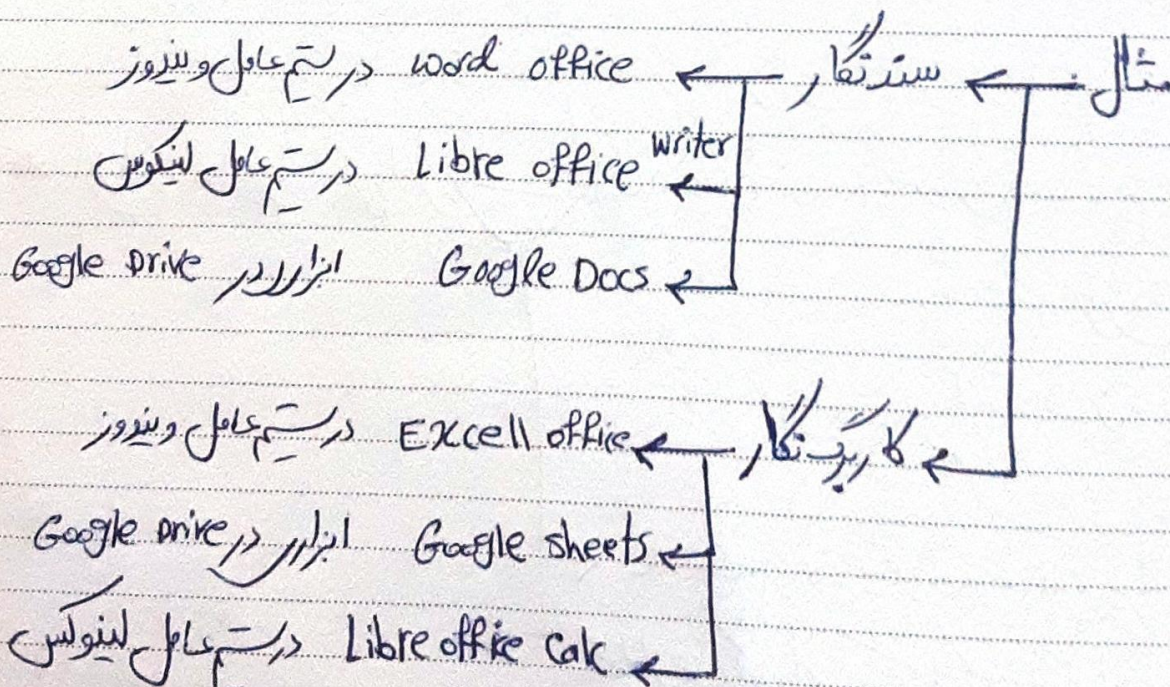 مثال ← سندنگار ← word office در سیستم عامل ویندوز
← Libre office writer در سیستم عامل لینوکس
← Google Docs ابزاری در Google Drive
← کاربرگ نگار ← EXcell office در سیستم عامل ویندوز
← Google sheets ابزاری در Google Drive
← Libre office calc در سیستم عامل لینوکس